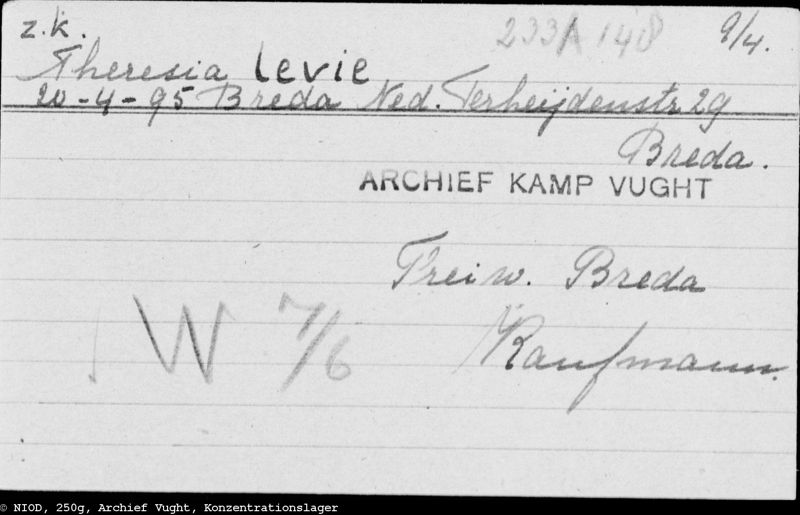 z.k. 233A 148 9/4.
Theresia Levie
20-4-95 Breda Ned. Terheijdenstr 29
Breda.
ARCHIEF KAMP VUGHT
Freiw. Breda
W 7/6 Kaufmann.
© NIOD, 250g, Archief Vught, Konzentrationslager